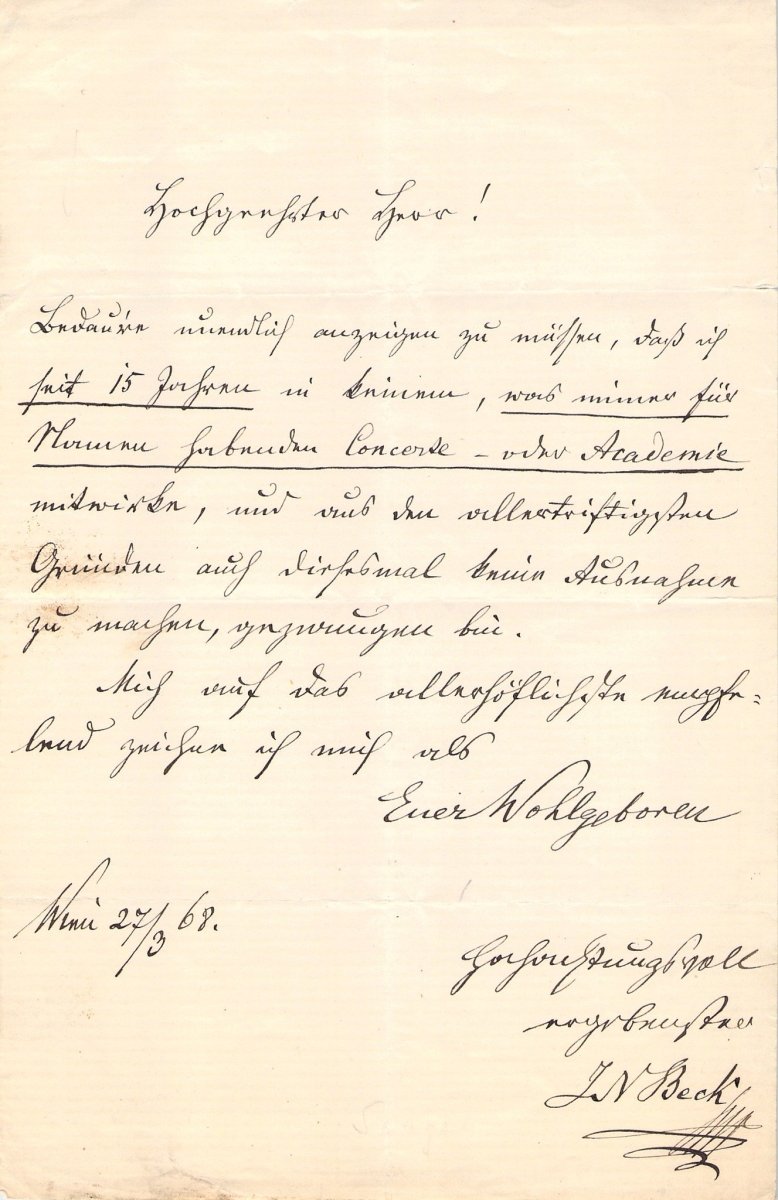 Hochgeehrter Herr!
Bedau're unendlich anzeigen zu müssen, daß ich
seit 15 Jahren in keinem, was immer für
Namen habenden Concerte - oder Academie
mitwirke, und aus den allertriftigsten
Gründen auch diesesmal keine Ausnahme
zu machen, gezwungen bin.
Mich auf das allerhöflichste empfe=
lend zeichne ich mich als
Euer Wohlgeboren
Wien 27/3 68.
Hochachtungsvoll
ergebenster
JN Beck